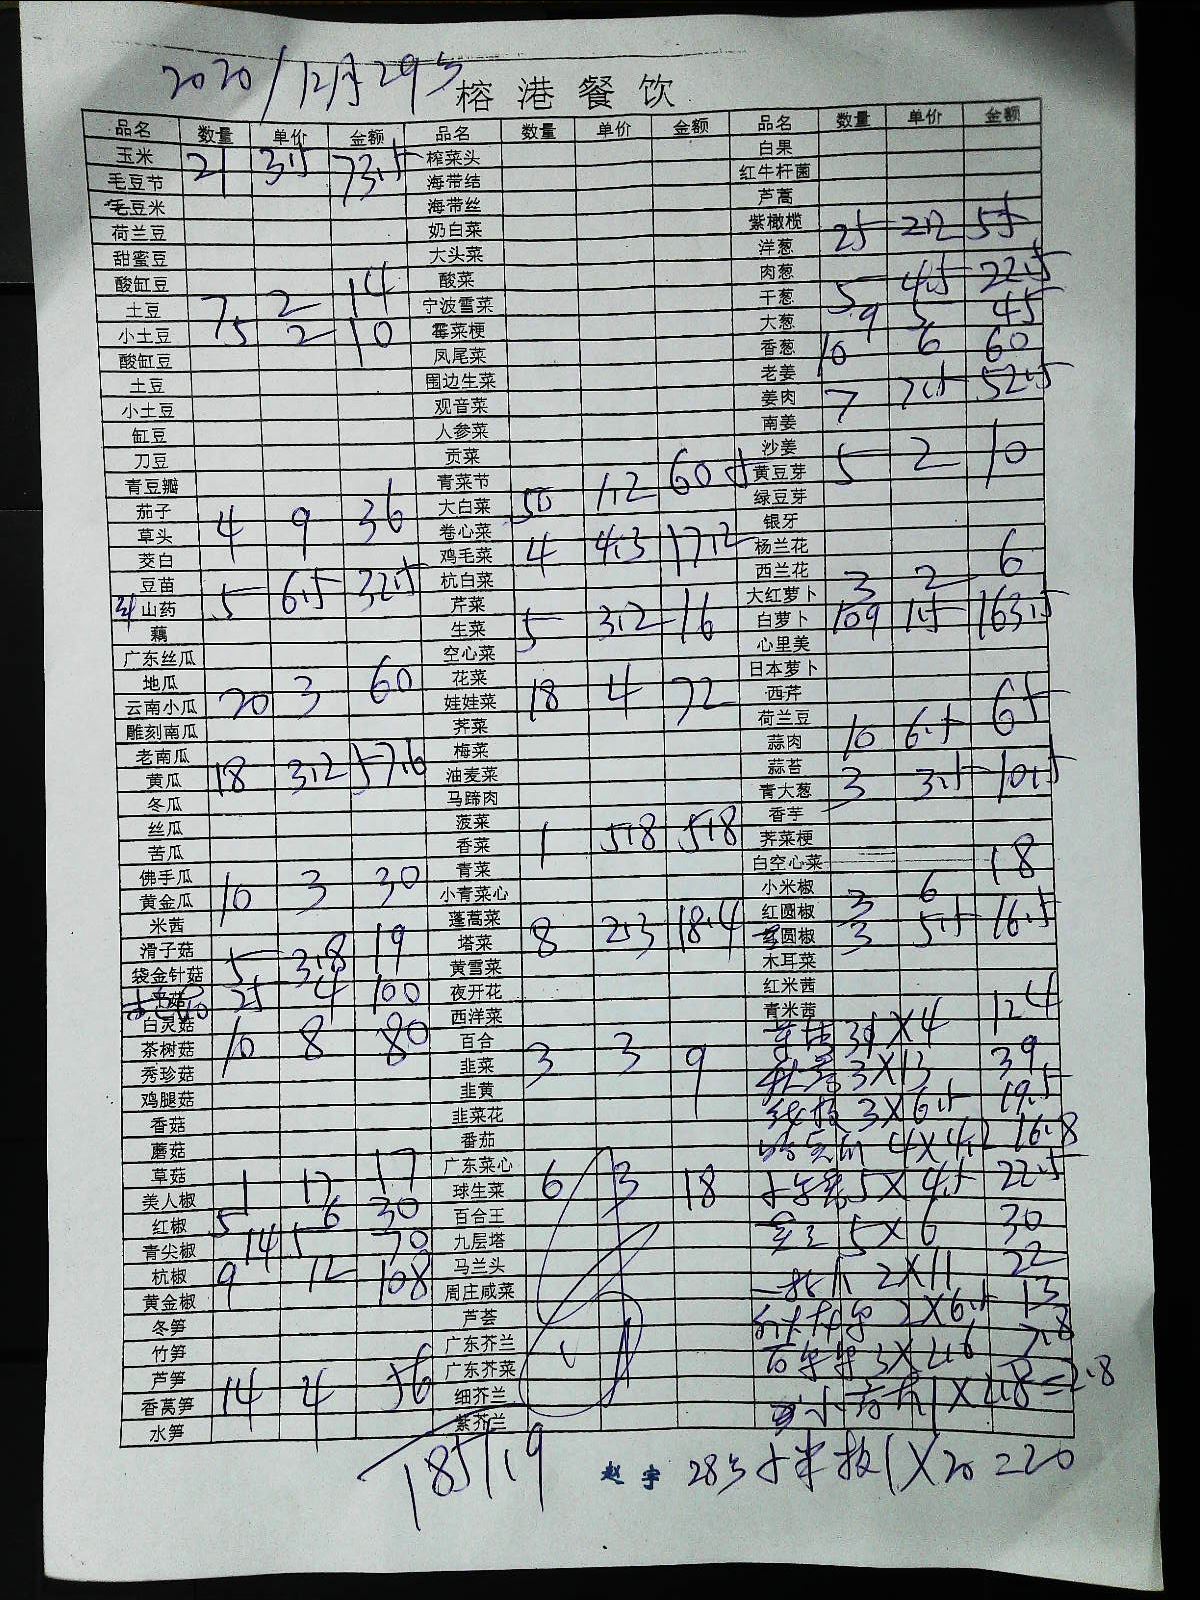 2020/12月29号 榕港餐饮
品名 数量 单价 金额 品名 数量 单价 金额 品名 数量 单价 金额
玉米 21 3.5 73.5 榨菜头 白果
毛豆节 海带结 红牛杆菌
毛豆米 海带丝 芦蒿
荷兰豆 奶白菜 紫橄榄
甜蜜豆 大头菜 洋葱 25 2.2 55
酸缸豆 酸菜 肉葱
土豆 7 2 14 宁波雪菜 干葱 5 4.5 22.5
小土豆 5 2 10 霉菜梗 大葱 9 5 45
酸缸豆 凤尾菜 香葱 10 6 60
土豆 围边生菜 老姜
小土豆 观音菜 姜肉 7 7.5 52.5
缸豆 人参菜 南姜
刀豆 贡菜 沙姜
青豆瓣 青菜节 黄豆芽 5 2 10
茄子 大白菜 50 1.2 60 绿豆芽
草头 4 9 36 卷心菜 银牙
茭白 鸡毛菜 4 4.3 17.2 杨兰花
豆苗 杭白菜 西兰花
山药 5 6.5 32.5 芹菜 大红萝卜 3 2 6
藕 生菜 5 3.2 16 白萝卜 109 1.5 163.5
广东丝瓜 空心菜 心里美
地瓜 花菜 日本萝卜
云南小瓜 20 3 60 娃娃菜 18 4 72 西芹
雕刻南瓜 荠菜 荷兰豆
老南瓜 梅菜 蒜肉 10 6.5 65
黄瓜 18 3.2 57.6 油麦菜 蒜苔
冬瓜 马蹄肉 青大葱 3 3.5 10.5
丝瓜 菠菜 香芋
苦瓜 香菜 1 5.8 5.8 荠菜梗
佛手瓜 青菜 白空心菜
黄金瓜 10 3 30 小青菜心 小米椒
米茜 蓬蒿菜 红圆椒 3 6 18
滑子菇 塔菜 8 2.3 18.4 圆椒 3 5.5 16.5
袋金针菇 5 3.8 19 黄雪菜 木耳菜
25 4 100 夜开花 红米茜
白灵菇 西洋菜 青米茜
茶树菇 10 8 80 百合 31X4 124
秀珍菇 韭菜 3 3 9 3X13 39
鸡腿菇 韭黄 3X6.5 19.5
香菇 韭菜花 4X4.2 16.8
蘑菇 番茄 5X4.5 22.5
草菇 广东菜心 5X6 30
美人椒 1 17 17 球生菜 6 3 18 2X11 22
红椒 5 6 30 百合王 2X6.5 13
青尖椒 14 5 70 九层塔 3X2.6 7.8
杭椒 9 12 108 马兰头 1X2.8=2.8
黄金椒 周庄咸菜
冬笋 芦荟
竹笋 广东芥兰
芦笋 广东芥菜
香莴笋 14 4 56 细芥兰
水笋 紫芥兰
1851.9 赵宇 28号小米椒1X20=20